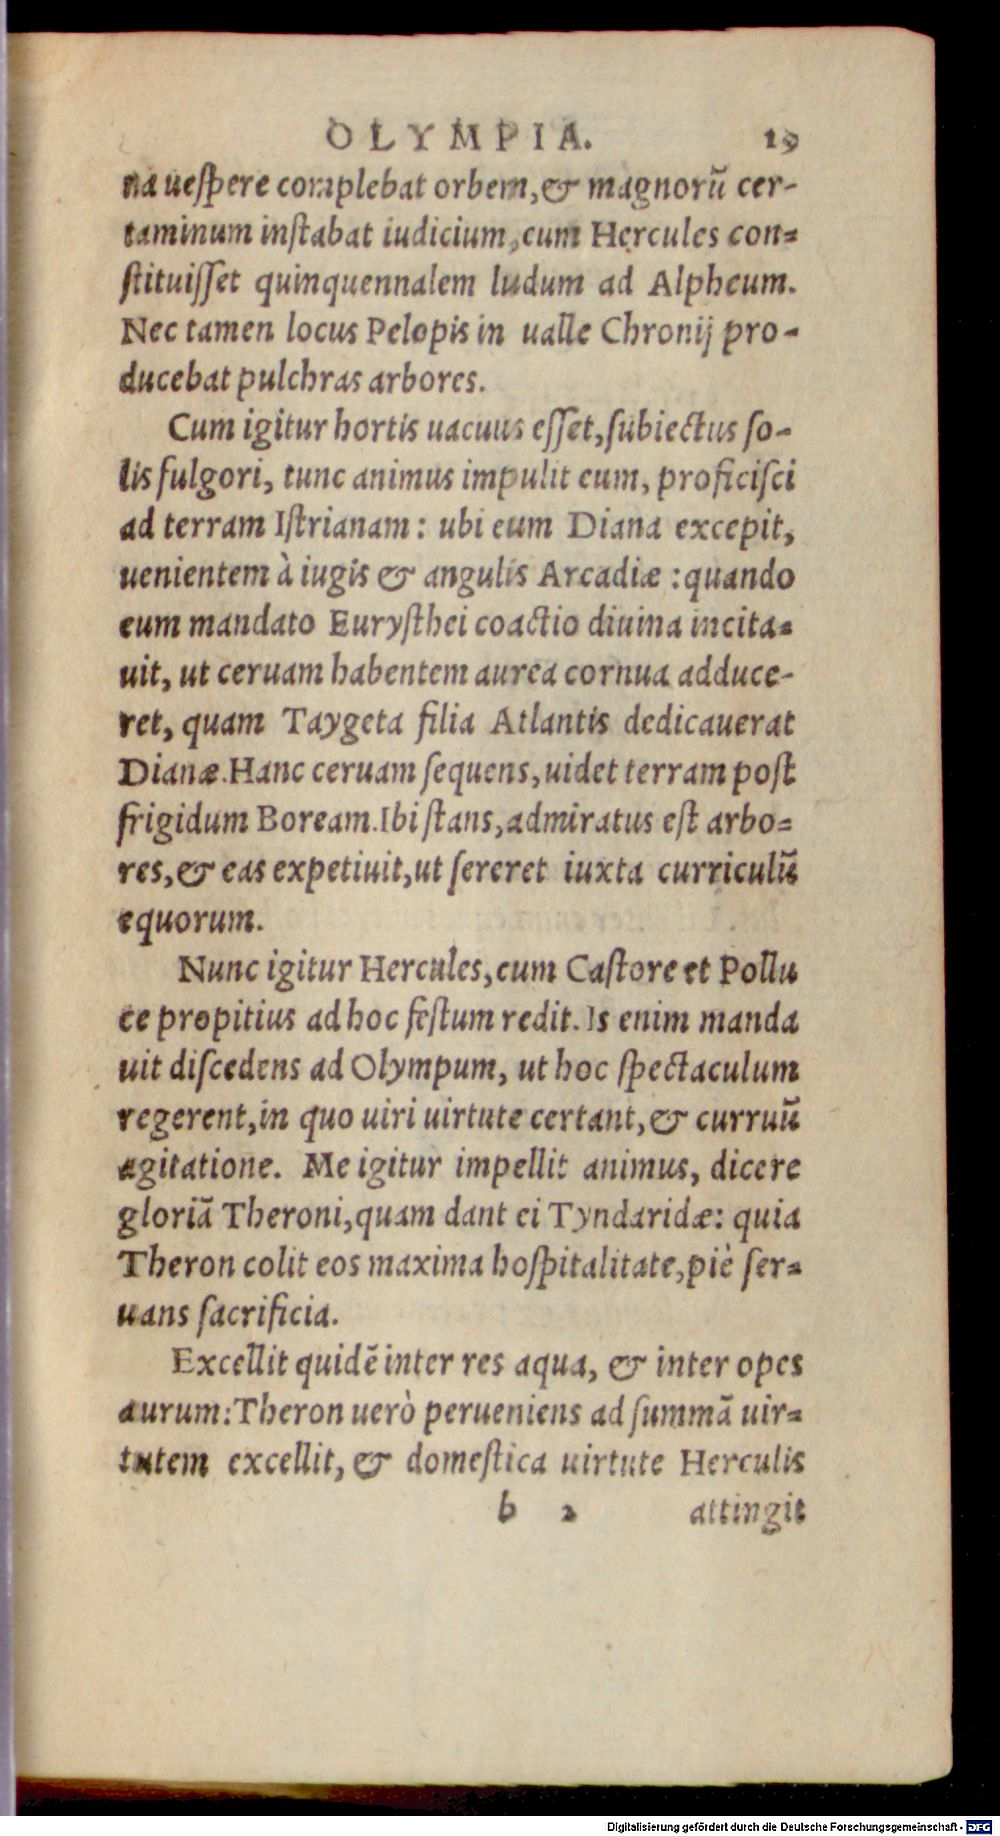 OLYMPIA. 19
na ueſpere complebat orbem, & magnorũ cer-
taminum inſtabat iudicium, cum Hercules con-
ſtituiſſet quinquennalem ludum ad Alpheum.
Nec tamen locus Pelopis in ualle Chronij pro-
ducebat pulchras arbores.
Cum igitur hortis uacuus eſſet, ſubiectus ſo-
lis fulgori, tunc animus impulit eum, proficiſci
ad terram Iſtrianam: ubi eum Diana excepit,
uenientem à iugis & angulis Arcadiæ: quando
eum mandato Euryſthei coactio diuina incita-
uit, ut ceruam habentem aurea cornua adduce-
ret, quam Taygeta filia Atlantis dedicauerat
Dianæ. Hanc ceruam ſequens, uidet terram poſt
frigidum Boream. Ibi ſtans, admiratus eſt arbo-
res, & eas expetiuit, ut ſereret iuxta curriculũ
equorum.
Nunc igitur Hercules, cum Caſtore et Pollu
ce propitius ad hoc feſtum redit. Is enim manda
uit diſcedens ad Olympum, ut hoc ſpectaculum
regerent, in quo uiri uirtute certant, & curruũ
agitatione. Me igitur impellit animus, dicere
gloriã Theroni, quam dant ei Tyndaridæ: quia
Theron colit eos maxima hoſpitalitate, piè ſer-
uans ſacrificia.
Excellit quidẽ inter res aqua, & inter opes
aurum: Theron uerò perueniens ad ſummã uir-
tutem excellit, & domeſtica uirtute Herculis
b 2 attingit
Digitalisierung gefördert durch die Deutsche Forschungsgemeinschaft - DFG